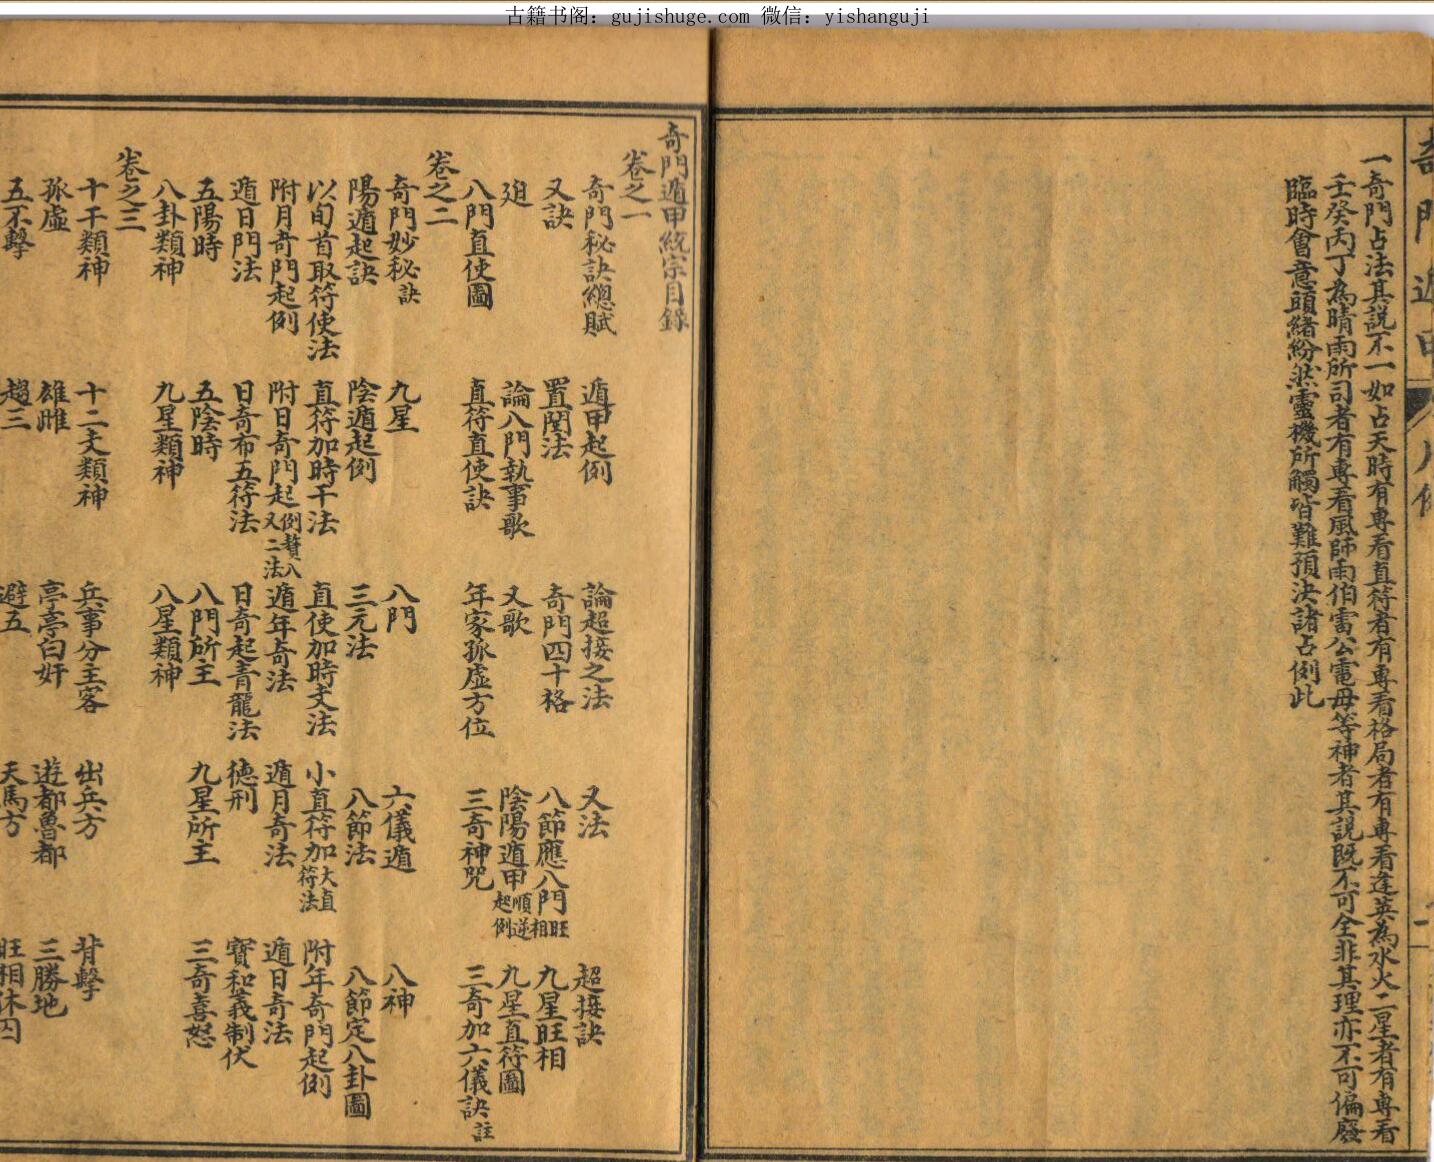 古籍书阁：gujishuge.com 微信：yishanguji
一奇門占法其說不一如占天時有專看直符者有專看格局者有專看逢英為水火二星者有專看
壬癸丙丁為晴雨所司者有專看風師雨伯雷公電母等神者其說既不可全非其理亦不可偏廢
臨時會意頭緒紛然靈機所觸皆難預決諸占例此
奇門遁甲統宗目錄
卷之一
奇門秘訣總賦 遁甲起例 論超接之法 又法 超接訣
又訣 置閏法 奇門四十格 八節應八門旺相 九星旺相
論八門執事歌 又歌 陰陽遁甲順逆起例 九星直符圖
八門直使圖 直符直使訣 年家孤虛方位 三奇神咒 三奇加六儀訣註
卷之二
奇門妙秘訣 九星 八門 六儀遁 八神
陽遁起訣 陰遁起例 三元法 八節法 八節定八卦圖
以旬首取符使法 直符加時干法 直使加時支法 小直符加大直符法 附年奇門起例
附月奇門起例 附日奇門起例贅八又二法 遁年奇法 遁月奇法 遁日奇法
遁日門法 日奇布五符法 日奇起青龍法 德刑 寳和義制伏
五陽時 五陰時 八門所主 九星所主 三奇喜怒
八卦類神 九星類神 八星類神
卷之三
十干類神 十二支類神 兵事分主客 出兵方 背擊
孤虛 雄雌 亭亭白奸 遊都魯都 三勝地
五不擊 趨三 避五 天馬方 旺相休囚